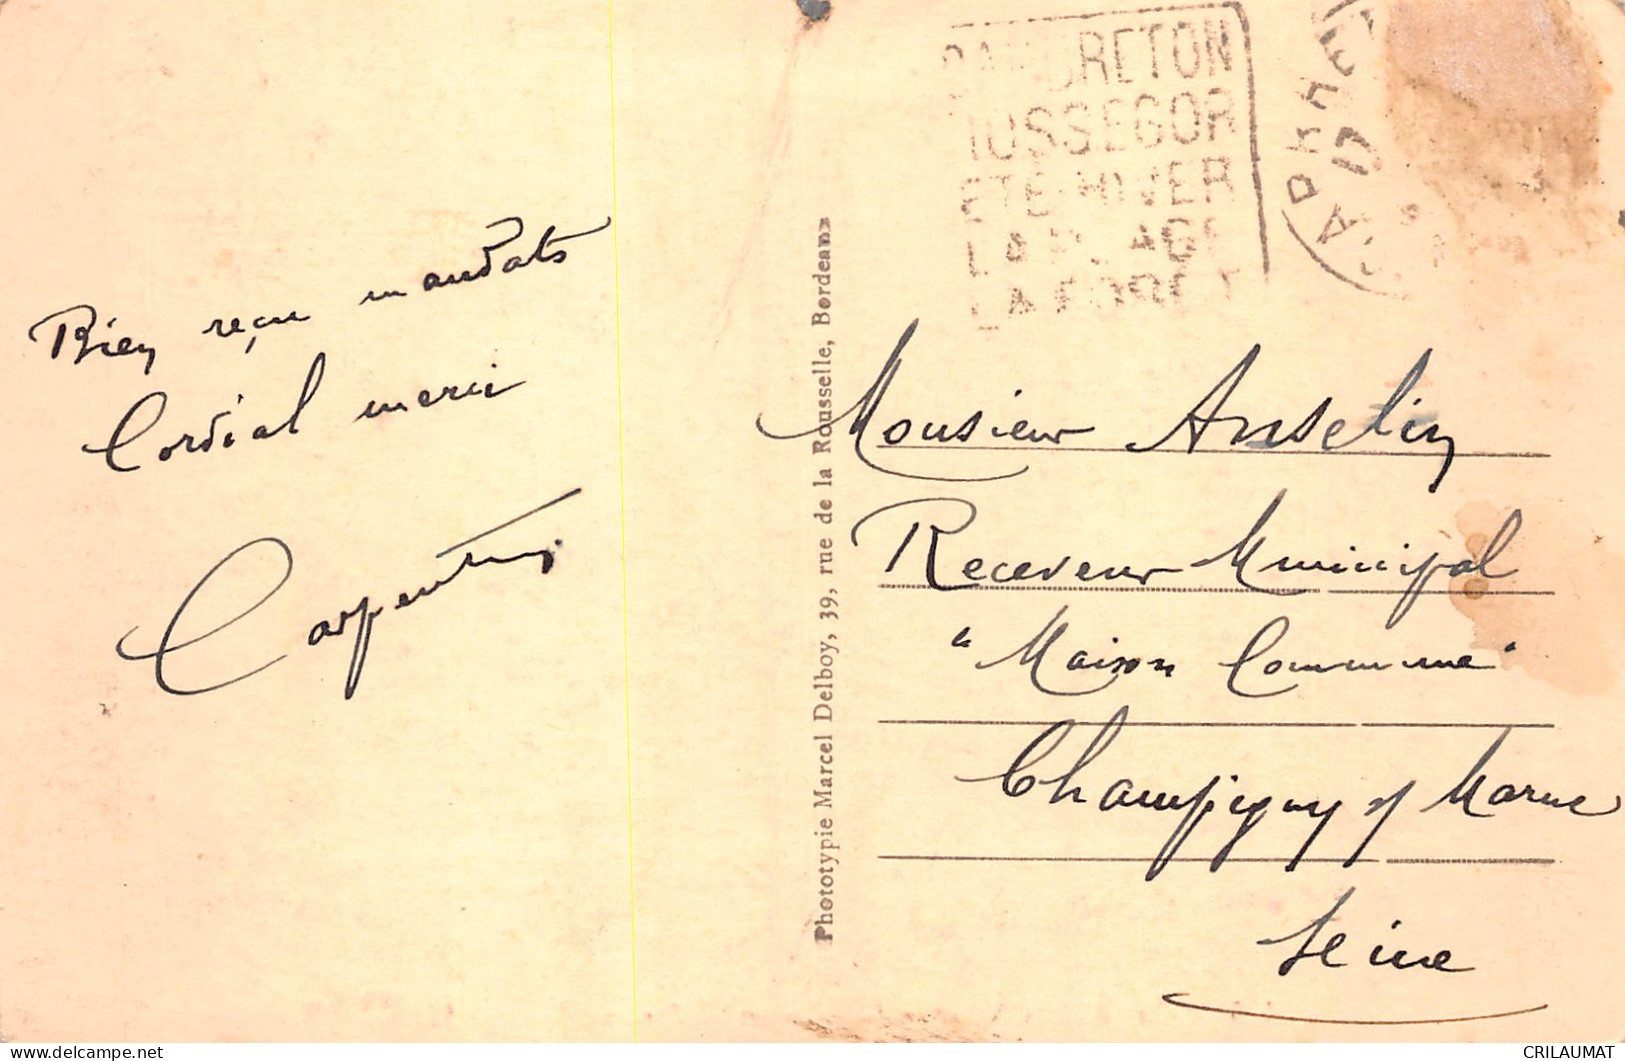 Bien reçu mandats
Cordial merci
Carpentier
Phototypie Marcel Delboy, 39, rue de la Rousselle, Bordeaux
CAPBRETON
HOSSEGOR
ETE-HIVER
LA PLAGE
LA FORET
Monsieur Anselin
Receveur Municipal
"Maison Commune"
Champigny s/ Marne
Seine
CRILAUMAT